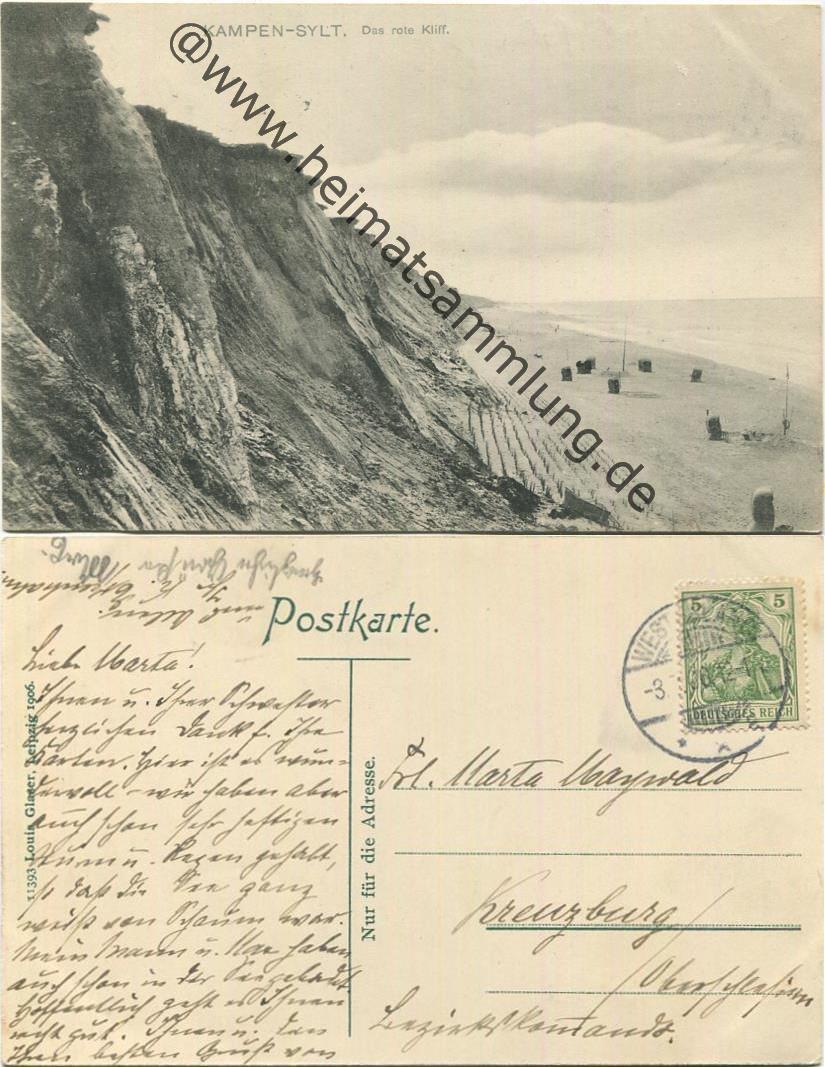 KAMPEN-SYLT. Das rote Kliff.
@www.heimatsammlung.de
Postkarte.
5 5
DEUTSCHES REICH
11393 Louis Glaser, Leipzig 1906.
Nur für die Adresse.
Liebe Marta!
Ihnen u. Ihrer Schwester
herzlichen Dank f. Ihre
Karten. Hier ist es wun-
dervoll – wir haben aber
auch schon sehr heftigen
Sturm u. Regen gehabt,
so daß die See ganz
weiß von Schaum war.
Mein Mann u. haben
auch schon in der See gebadet
Hoffentlich geht es Ihnen
recht gut. Ihnen u. den
Ihren besten Gruß von
Frl. Marta Maywald
Kreuzburg/
/Oberschlesien
Bezirkskomando.